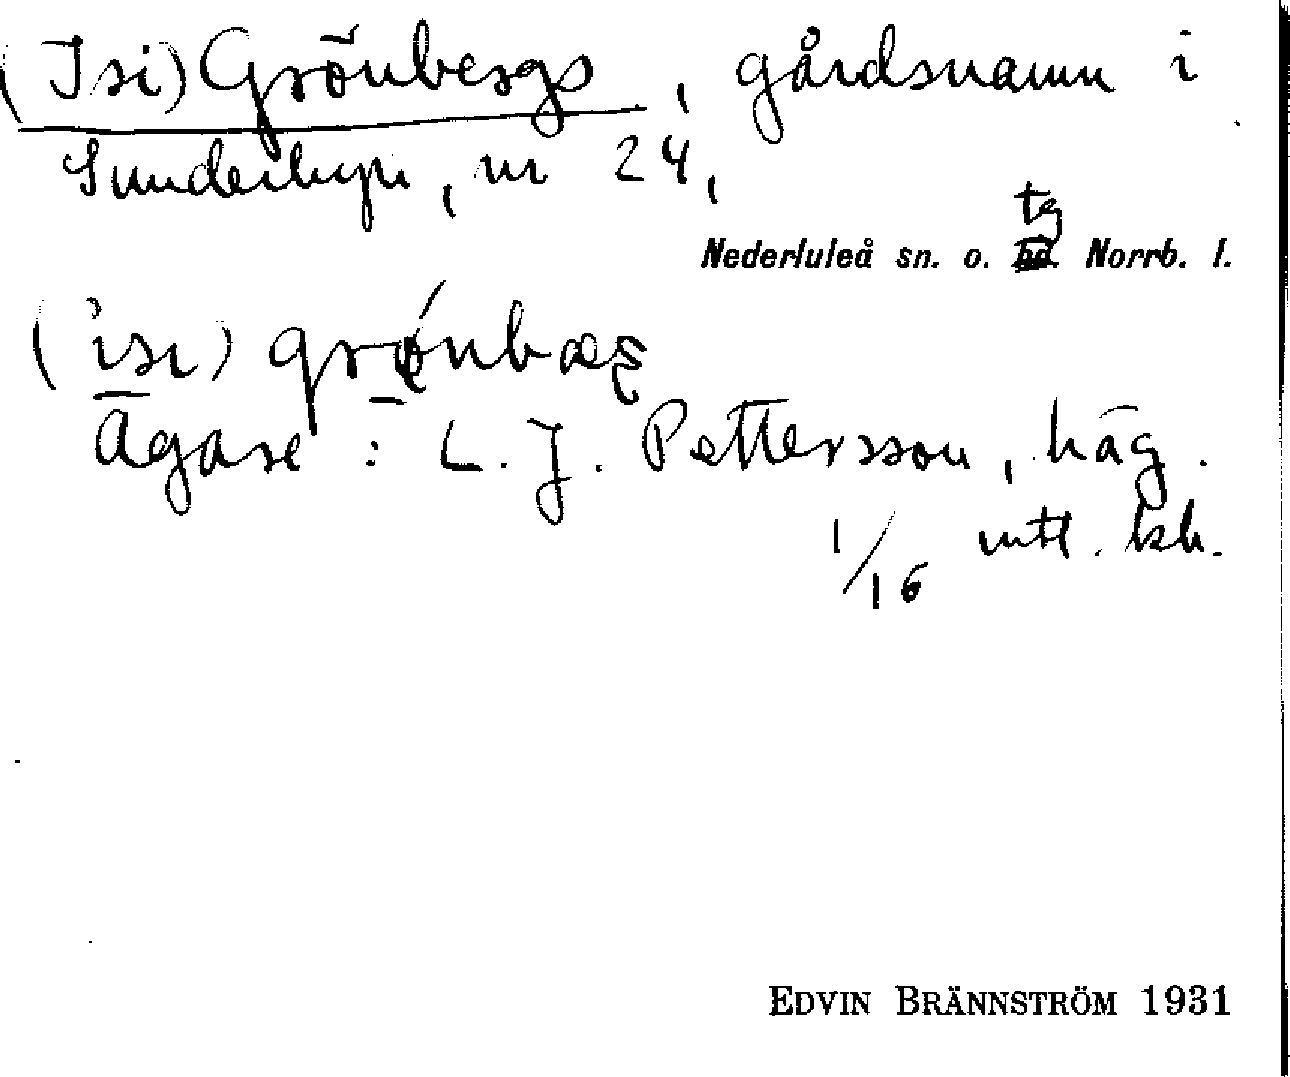 (Isi) Grönbergs, gårdsnamn i
Sunderbyn, nr 24,
Nederluleå sn. o. tg Norrb. l.
(isi) grǿnbæȩ
Ägare: L. J. Pettersson, häg.
1/16 mtl. kh.
EDVIN BRÄNNSTRÖM 1931